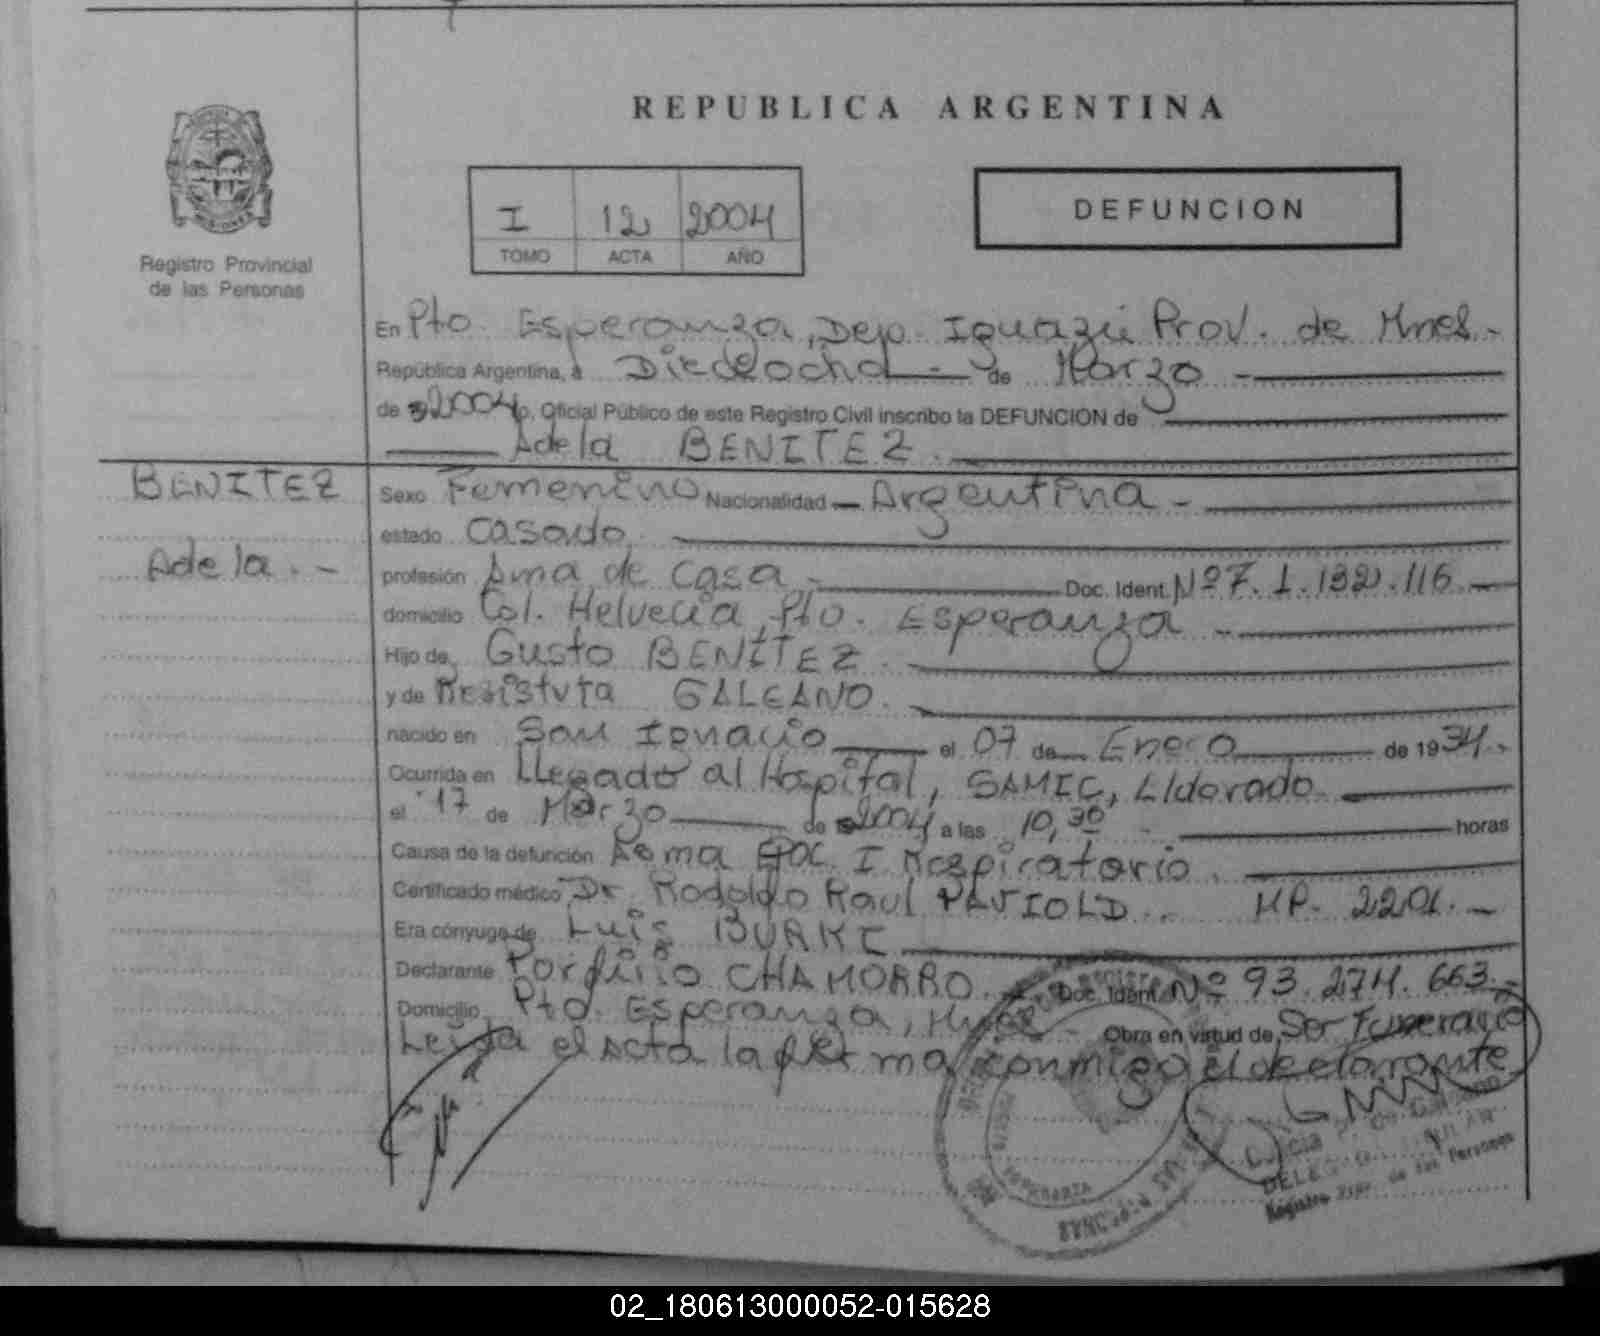 REPUBLICA ARGENTINA
MISIONES
Registro Provincial
de las Personas
I 12 2004
TOMO ACTA AÑO
DEFUNCION
En Pto. Esperanza, Dep. Iguazú Prov. de Mnes.-
República Argentina, a Dieciocho - de Marzo -
de 2004 yo, Oficial Público de este Registro Civil inscribo la DEFUNCION de
Adela BENITEZ.
BENITEZ
Adela.-
Sexo Femenino Nacionalidad Argentina -
estado casado.
profesión Ama de casa - Doc. Ident. Nº 7.1.132.116
domicilio Col. Helvecia, Pto. Esperanza -
Hijo de Gusto BENÍTEZ.
y de Resistuta GALEANO.
nacido en San Ignacio el 07 de Enero de 1934.
Ocurrida en Llegado al Hospital, SAMIC, Eldorado
el 17 de Marzo de 2004 a las 10,30 horas
Causa de la defunción Asma EPOC I Respiratorio.
Certificado médico Dr. Rodolfo Raul MP. 2201.-
Era cónyuge de Luis BURKE
Declarante Porfirio CHAMORRO. Doc. Ident. Nº 93.274.663.-
Domicilio Pto. Esperanza, Mnes - Obra en virtud de Ser Funerario
Leída el Acta la firma conmigo el declarante
ESPERANZA
DELEG
Registro Prov. de las Personas
02_180613000052-015628